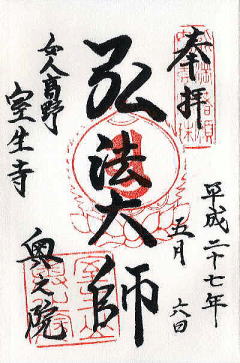 奉拝
平成二十七年
五月六日
弘法大師
女人高野
室生寺
奥之院